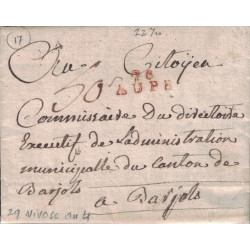 17
2270
Au Citoyen
78
AUPS
Commissaire Du directoire
Executif de L'administration
municipalle du canton de
Barjols
a Barjols
29 nivose an 4